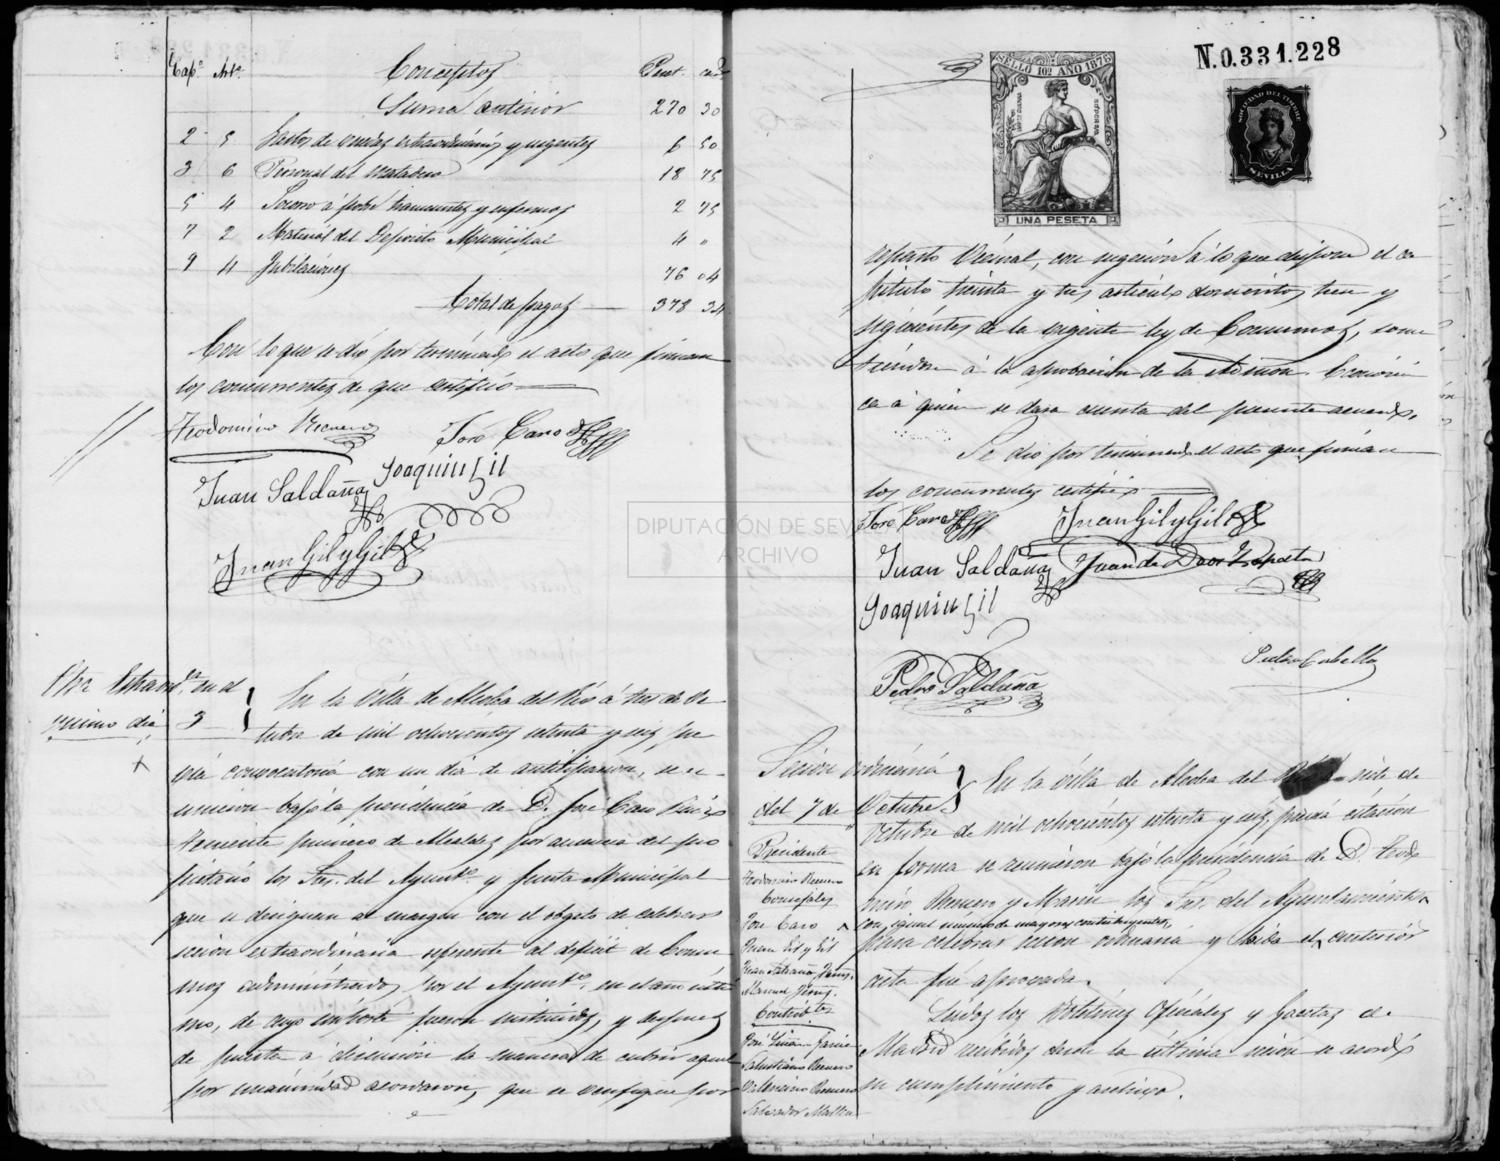 Cap.º Art.º Conceptos Peset. cs
Suma anterior 270 30
2 5 Gastos de quedas extraordinarios y urgentes 6 50
3 6 Personal del Matadero 18 75
5 4 Socorro á pobres transeuntes y enfermos 2 75
7 2 Material del Deposito Municipal 4 "
9 4 Jubilaciones 76 04
Total de pagos 378 34
Con lo que se dio por terminado el acto que firman
los concurrentes de que certifico
Teodomiro Romero José Caro
Juan Saldaña Joaquin Gil
Juan Gil y Gil
Otra Extraord.ª en el
mismo dia 3
En la villa de Alcolea del Rio á tres de Oc-
tubre de mil ochocientos setenta y seis pre
via convocatoria con un dia de anticipacion, se re-
unieron bajo la presidencia de D. José Caro Ruiz
Teniente primero de Alcaldes por ausencia del pro
pietario los Sres. del Ayunt.º y Junta Municipal
que se designan al margen con el objeto de celebrar
sesion extraordinaria referente al deficit de Consu
mos administrados por el Ayunt.º en el año
mo, de cuyo importe fueron instruidos, y despues
de puesta a discusion la manera de cubrir aquel
por unanimidad acordaron, que se verifique por
SELLO 10º AÑO 1876
UNA PESETA
N.0.331.228
SOCIEDAD DEL TIMBRE
SEVILLA
reparto Vecinal, con sugecion á lo que dispone el ca
pitulo treinta y tres articulo doscientos trece y
siguientes de la vigente ley de Consumos, some
tiendose á la aprobacion de la Admon. Económi
ca á quien se dara cuenta del presente acuerdo.
Se dio por terminado el acto que firman
los concurrentes certifico
José Caro Juan Gil y Gil
Juan Saldaña Juan de Dios Zapata
Joaquin Gil
Pedro Cabello
Pedro Saldaña
DIPUTACIÓN DE SEVILLA
ARCHIVO
Sesion ordinaria
del 7 de Octubre
Presidente
Teodomiro Romero
Concejales
José Caro
Juan Gil y Gil
Juan Saldaña
Manuel
Contrib.tes
José Garcia
Salustiano Romero
Valeriano Romero
Salvador
En la villa de Alcolea del siete de
Octubre de mil ochocientos setenta y seis, previa citacion
en forma se reunieron bajo la presidencia de D. Teodo
miro Romero y Marin los Sres. del Ayuntamiento
con igual número de mayores contribuyentes,
para celebrar sesion ordinaria y leida el anterior
acta fué aprobada.
Leidos los Boletines Oficiales y Gacetas de
Madrid recibidos desde la última sesion se acordó
su cumplimiento y archivo.